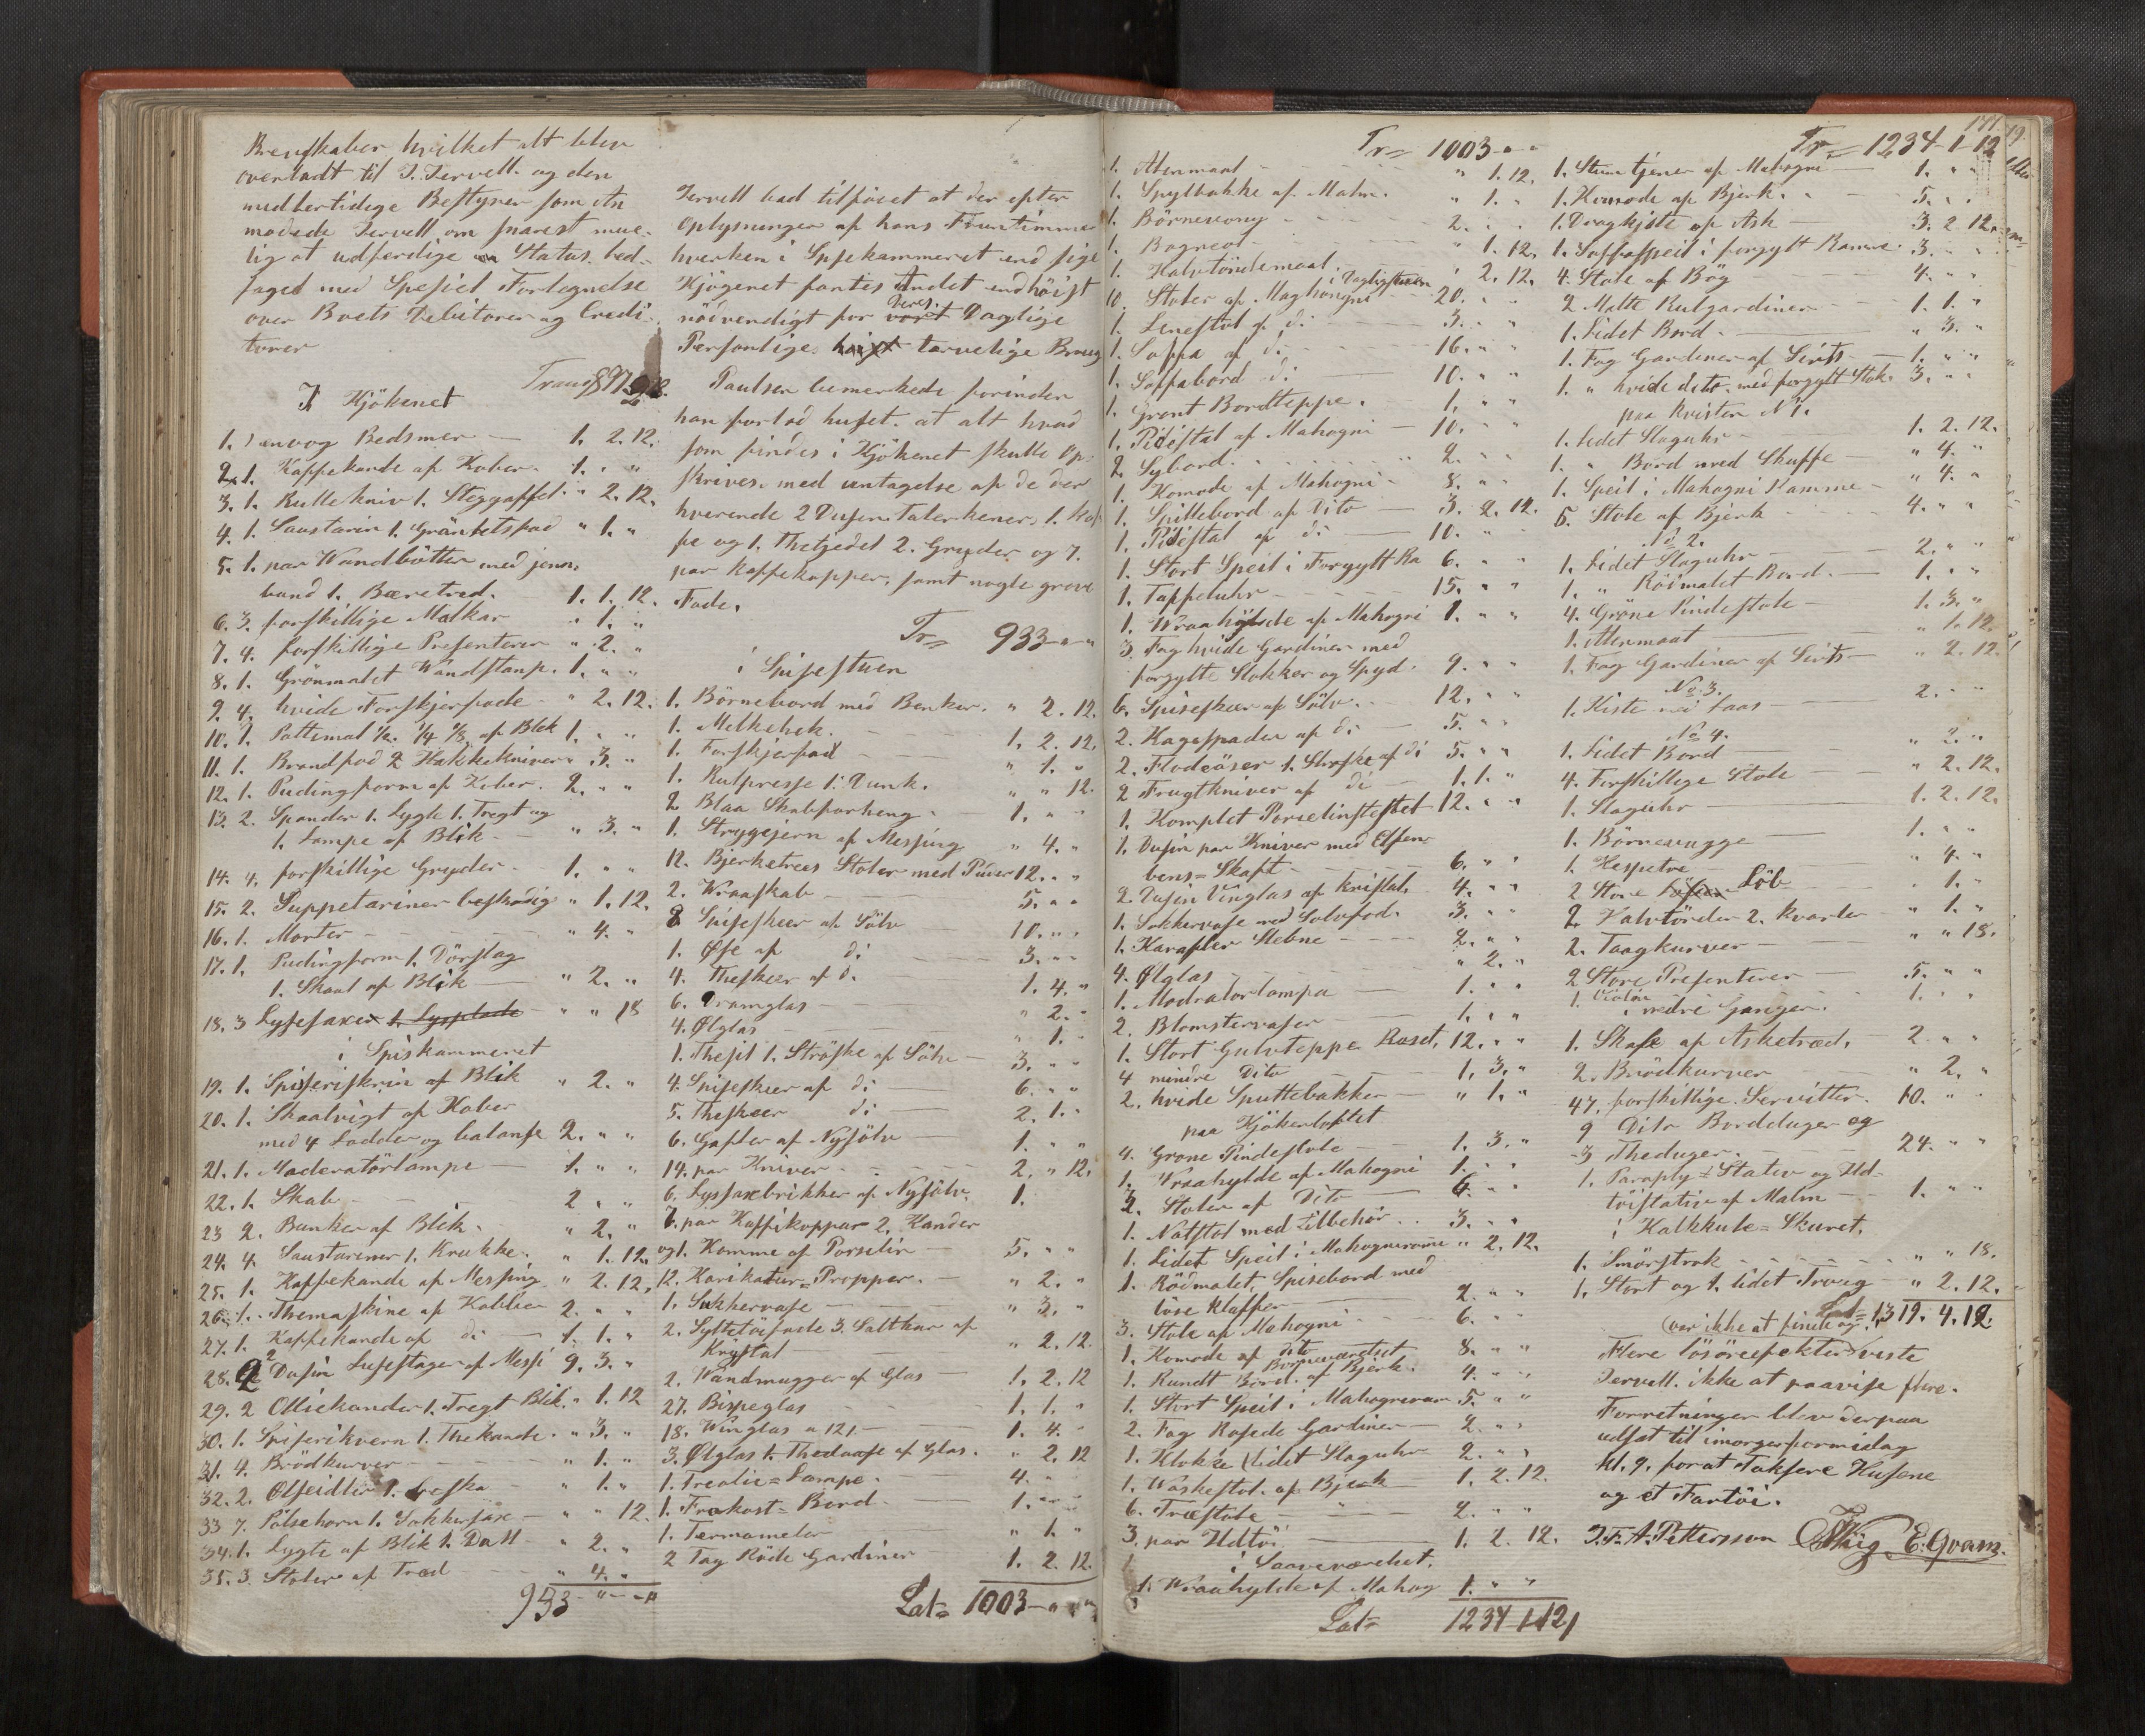 Brevskaber hvilket alt blev
overladt til J. Jervell. og den
midlertidige Bestyrer som an
modede Jervell om snarest mue-
lig at udferdige en Status. led-
saget med Spesiel Fortegnelse
over Boets Debitorer og Credi-
torer
I Kjökenet
1. 1 Bedsmer — 1. 2. 12.
2. 1. Kaffekande af Kober. 1. " "
3. 1. Rullekniv 1. Steggaffel. " 2. 12.
4. 1. Saustarin 1. Gränketsfad " 1. "
5. 1. par Wandbötter med jenn.
band 1. Bæretred. 1. 1. 12.
6. 3. forskillige Malkar " 1. "
7. 4. forskillige Presenterer " 2. "
8. 1. Grönmalet Wandstamp. 1. " "
9. 4. hvide Forskjerfade " 2. 12.
10. 1. Pottemal 1/2. 1/4 1/8. af Blek 1. " "
11. 1. Brandfad 2 Hakkekniver " 3. "
12. 1. Pudingform af Kober. 2. " "
13. 2. Spander 1. Lygte 1. Tregt og
1. Lampe af Blik — " 3. "
14. 4. forskillige Gryder 1. " "
15. 2. Suppetariner beskadig " 1. 12.
16. 1. Morter " 4. "
17. 1. Pudingform 1. Dörslag
1. Skaal af Blik — " 2. "
18. 3 Lysesaxer 1. Lysplade " " 18
i Spiskammeret
19. 1. Spiseriskrin af Blik " 2. "
20. 1. Skaalvigt af Kober
med 4 Lodder og balanse 2. " "
21. 1. Moderatörlampe — 1. " "
22. 1. Skab — 2 " "
23 2. Bunker af Blik. " 2. "
24. 4. Saustariner 1. Krukke. " 1. 12.
25. 1. Kaffekande af Messing " 2. 12.
26. 1. Themaskine af Kobber 2. " "
27. 1. Kaffekande af di — 1. 1. "
28. 2 Dusin Lysestager af Messi 9. 3. "
29. 2 Olliekander 1. Tregt Blik. " 1. 12
30. 1. Spiserikvern 1. Thekande. " 3. "
31. 4. Brödkurver " 1. "
32. 2. " 1. "
33 7. Pölsehorn 1. Sokkersax — " " 12.
34. 1. Lygte af Blik 1. Dall " 2. "
35. 3. Stoler af Træd " 4. "
933 " — "
Jervell bad tilföiet at der efter
Oplysninger af hans Fruentimmer
hverken i Spisekammeret end sige
Kjögenet fantes Andet end höist
nödvendigt for vort deres Daglige
Personlige tarvelige Brug
Paulsen bemerkede forinden
han forlod huset. at alt hvad
som findes i Kjökenet skulle op-
skrives. med untagelse af de der
hverende 2 Dusin Talerkener, 1. Kaf
fe og 1. Thekjedel 2. Gryder og 7.
par Kaffekopper, samt nogle grove
Fade.
Tr= 933 — " — "
i Spisestuen
1. Börnebord med Benker. " 2. 12.
1. Melkehek. 1. 2. 12.
1. Forskjærfad " 1. "
1. Rulpresse 1. Dunk. " " 12.
2 Blaa Skabforheng 1. " "
1. Strygejern af Messing " 4. "
12. Bjerketrees Stoler med Puder 12. " "
2. Wraaskab 5. " "
8 Spiseskeer af Sölv 10. " "
1. Øse af di 3. " "
4. Theskeer af di 1. 4. "
6. Dramglas — " 2. "
4. Ølglas " 1. "
1. Thesil 1. Ströske af Sölv — 3. " "
4. Spiseskeer af di — 6. " "
5. Theskeer di — 2. 1. "
6. Gafler af Nysölv — 1. " "
14. par Kniver 2. " 12.
6. Lyssaxbrikker af Nysölv. 1.
7. par Kaffikopper 2. Kander
og 1. Komme af Porselin — 5. " "
12. Karikatur=Propper. — " 2. "
1. Sukkervase — " 3. "
2. Syltetöifade 3. Saltkar af
Krystal — " 2. 12.
2. Wandmugger af Glas 1. 2. 12
27. Bispeglas 1. 1. "
18. Winglas a 12 1. — 1. 4. "
3. Ølglas 1. Thedaase af Glas. " 2. 12
1. Trealie=Lampe. 4. "
1. Frokost=Bord — 1. " "
1. Termometer " 1. "
2 Fag Röde Gardiner 1. 2. 12.
Lat= 1003 — " "
Tr= 1003 — " "
1. Atenmaal " 1. 12.
1. Spylbakke af Malm. " 1. "
1. Börnevogn 2. " "
1. Bogreol " 1. 12.
1. Halvtöndemaal. " 2. 12.
i Dagligstuen
10. Stoler af Maghongni 20. " "
1. Lenestol af di 3. " "
1. Soffa af di 16. " "
1. Soffabord di 10. " "
1. Grönt Bordteppe. 1. " "
1. Pidestal af Mahogni — 10. " "
2. Sybord. 2. " "
1. Komode af Mahogni — 8. " "
1. Spillebord af Dito 3. 2. 12.
1. Pidestal af di — 10. " "
1. Stort Speil i Forgyllt Ra 6. " "
1. Taffeluhr 15. " "
1. Wraahylde af Mahogni 1. " "
3. Fag hvide Gardiner med
forgylte Stokker og Spyd. 9. " "
6. Spiseskeer af Sölv. 12. " "
2. Kagespader af di — 5. " "
2. Flodeöser 1. Ströske af di 5. " "
2 Frugtkniver af di 1. 1. "
1. Komplet Porselinstestel 12. " "
1. Dusin par Kniver med Elfen
bens=Skaft 6. " "
2. Dusin Vinglas af Kristal. 4. " "
1. Sokkervase med Solvfod. 3. " "
1. Karafler Slebne — 2. " "
4. Ølglas " 2. "
1. Modratorlampa — 1. " "
2. Blomstervaser 1. " "
1. Stort Gulvteppe Roset. 12. " "
4 mindre Dito 1. 3. "
2. hvide Sputtebakker — " 1. "
paa Kjökenloftet
4. Grone Pindestole — 1. 3. "
1. Wraahylde af Mahogni 1. " "
2. Stoler af Dito — 6. " "
1. Natstol med Tilbehör. 3. " "
1. Lidet Speil i Mahognirame " 2. 12.
1. Rödmalet, Spisebord med
löse Klaffer 2. " "
3. Stole af Mahogni 6. " "
1. Komode af dito 8. " "
1. Rundt Bord. af Bjerk. 4. " "
1. Stort Speil i Mahogniram 5. " "
2. Fag Rosede Gardiner — 2. " "
1. Klokke lidet Slaguhr 2. " "
1. Waskestol. af Bjerk 1. 2. 12.
6. Træstole — 2. " "
3. par Ildtöi 1. 2. 12.
i
1. Wraahylde af Mahog 1. " "
Lat= 1234-1-12
Tr= 1234-1-12
1. Stumtjener af Mahogni — 1. " "
1. Komode af Bjerk. 5. " "
1. Dragkiste af Ask 3. 2 12.
1. Soffaspeil i forgylt Ramme. 3. " "
4. Stole af Bög 4. " "
2 Malte Rulgardiner 1. 1. "
1. Lidet Bord — " 3. "
1. Fag Gardiner af Sirts — 1. " "
1. " hvide dito. med forgyllt Stok. 3. " "
paa Kvisten No 1.
1. Lidet Slaguhr — 1. 2. 12.
1. " Bord med Skuffe — " 4. "
1. Speil i Mahogni Ramme — " 4. "
5. Stole af Bjerk 4. " "
No 2.
1. Lidet Slaguhr — 2. " "
1. " Rödmalet Bord. — 1. " "
4. Gröne Pindestole — 1. 3. "
1. Atenmaal " 1. 12.
1. Fag Gardiner af Sirts — " 2. 12.
No 3.
1. Kiste med Laas — 2. " "
No 4.
1. Lidet Bord — " 2. "
4. Forskillige Stole " 2. 12.
1. Slaguhr 1. 2. 12.
1. Börnevugge 1. " "
1. Hespetre " 4. "
2 Store Löb " 1. "
2. Halvtönder 2. Kvarter " 1. "
2. Taagkurver — " " 18.
2 Store Presenterer 5. " "
1. Violin 1. " "
i nedre Ganger.
1. Skab af Asketræd. 2. " "
2. Brödkurver " 2. "
47. forskillige Servitter. 10. " "
9 Dito Bordduger og
3 Theduger. 24. " "
1. Paraply=Stativ og Ild-
töistativ af Malm — 1. " "
i Kalkkule=Skuret.
1. Smörtrok " " 18.
1. Stort og 1. lidet Troug " 2. 12.
Lat= 1319. 4. 12.
var ikke at finde og
Flere lösöreefekter veste
Jervell. ikke at paavise flere.
Forretningen blev derpaa
udsat til imorgenformidag
kl. 9. for at Taksere Husene
og et Fartöi.
J. F. A. Pettersson E. Qvam.